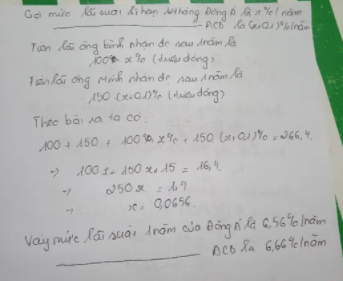 Gọi mức lãi suất kì hạn 12 tháng Đông Á là x%/năm
ACB là (x+0,1)%/năm
Tiền lãi ông bình nhận đc sau 1 năm là
100 x% (triệu đồng)
Tiền lãi ông minh nhận đc sau 1 năm là
150 (x+0,1)% (triệu đồng)
Theo bài ra ta có
100 + 150 + 100 x% + 150 (x+0,1)% = 266,4
→ 100x + 150x + 15 = 16,4
→ 250x = 1,4
→ x = 0,0656
Vậy mức lãi suất 1 năm của Đông Á là 6,56%/năm
ACB là 6,66%/năm